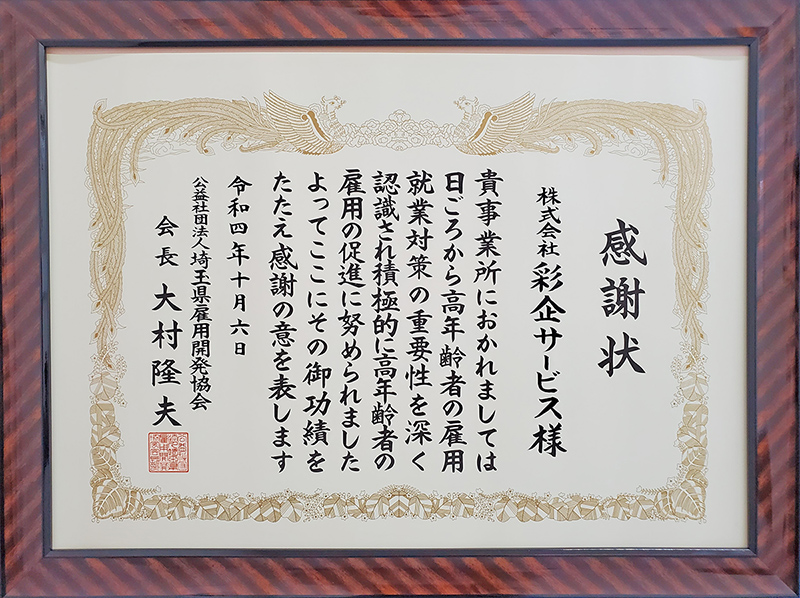 感謝状
株式会社 彩企サービス様
貴事業所におかれましては
日ごろから高年齢者の雇用
就業対策の重要性を深く
認識され積極的に高年齢者の
雇用の促進に努められました
よってここにその御功績を
たたえ感謝の意を表します
令和四年十月六日
公益社団法人 埼玉県雇用開発協会
会長 大村隆夫